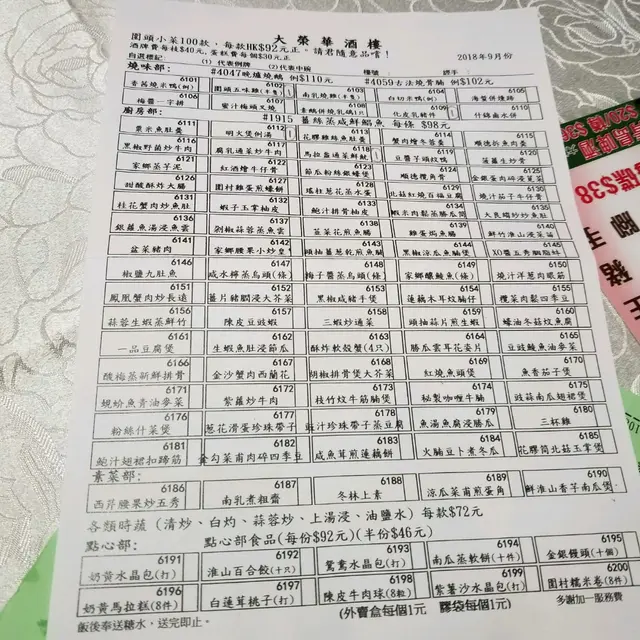 大榮華酒樓
圍頭小菜100款、每款HK$92元正。請君隨意品嚐！
酒牌費每枝$40元,蛋糕費每個$30元正
2018年9月份
自選標記: (1) 代表例牌 (2)代表中碗
樓號: 經手:
燒味部: #4047晚爐燒鵝 例$110元 #4059古法燒骨腩 例$102元
6101 6102 6103 6104 6105
香茜燒米鴨(例) 圍頭五味雞 南乳燒雞 白切米鴨(例) 海蜇併燻蹄
6106 6107 6108 6109 6110
梅醬一字排 蜜汁梅頭叉燒 化皮乳豬件 什錦鹵水併
廚房部: #1915 薑絲蒸咸鮮鯧魚 每條 $98元
6111 6112 6113 6114 6115
粟米魚肚羹 明火煲例湯 花膠雞絲魚肚羹 蟹肉燴冬蓉羹 順德拆魚肉羹
6116 6117 6118 6119 6120
黑椒野菌炒牛肉 腐乳通菜炒牛肉 馬拉盞通菜鮮魷 豆醬芋頭炆鴨 菠蘿生炒骨
6121 6122 6123 6124 6125
家鄉蒸芋泥 紅酒燴牛仔骨 節瓜粉絲銀蝦煲 順德欖角骨 金銀蛋肉碎浸莧菜
6126 6127 6128 6129 6130
甜酸酥炸大腸 圍村雞蛋煎蠔餅 瑤柱蔥花蒸水蛋 北菇紅燒百福豆腐 燒汁茄子牛仔骨
6131 6132 6133 6134 6135
桂花蟹肉炒魚肚 蝦子玉掌柚皮 鮑汁排骨柚皮 蝦米肉鬆蒸勝瓜筒
6136 6137 6138 6139 6140
銀蘿魚湯浸魚雲 剁椒蒜蓉蒸魚雲 韮菜花煎魚腸 雞蛋焗魚腸 鮮竹淮山浸菜苗
6141 6142 6143 6144 6145
盆菜豬肉 家鄉腰果小炒皇 頭抽薑蔥乾煎魚腩 黑椒涼瓜魚腩煲 XO醬五秀胭脂蚌
6146 6147 6148 6149 6150
椒鹽九肚魚 咸水檸蒸烏頭(條) 梅子醬蒸烏頭(條) 家鄉釀鯪魚(條) 燒汁洋蔥肉眼筋
6151 6152 6153 6154 6155
鳳凰蟹肉炒長遠 薑片豬膶浸大芥菜 黑椒咸豬手煲 蓮藕木耳炆腩仔 欖菜肉鬆四季豆
6156 6157 6158 6159 6160
蒜蓉生蝦蒸鮮竹 陳皮豆豉蝦 三蝦炒通菜 頭抽蒜片煎生蝦 蠔油冬菇炆魚腐
6161 6162 6163 6164 6165
一品豆腐煲 生蝦魚肚浸節瓜 酥炸軟殼蟹(4只) 勝瓜雲耳花菱片 豆豉鯪魚油麥菜
6166 6167 6168 6169 6170
酸梅蒸新鮮排骨 金沙蟹肉西蘭花 胡椒排骨煲大芥菜 紅燒魚頭煲 魚香茄子煲
6171 6172 6173 6174 6175
蜆蚧魚青油麥菜 紫蘿炒牛肉 枝竹炆牛筋腩煲 秘製咖喱牛腩 豉蒜南瓜翅裙煲
6176 6177 6178 6179 6180
粉絲什菜煲 蔥花滑蛋珍珠帶子 豉汁珍珠帶子蒸豆腐 魚湯魚腐浸勝瓜 三杯雞
6181 6182 6183 6184 6185
鮑汁翅裙扣蹄筋 勾菜甫肉碎四季豆 咸魚茸煎蓮藕餅 火腩豆卜煮冬瓜 花膠筒北菇玉掌煲
素菜部:
6186 6187 6188 6189 6190
西芹腰果炒五秀 南乳煮粗齋 冬林上素 涼瓜菜甫煎蛋角 鮮淮山香子南瓜煲
各類時蔬 (清炒、白灼、蒜蓉炒、上湯浸、油鹽水) 每款$72元
點心部: 點心部食品(每份$92元)(半份$46元)
6191 6192 6193 6194 6195
奶黃水晶包(打) 淮山百合餃(十只) 鴛鴦水晶包(打) 南瓜蒸軟餅(十件) 金銀饅頭(十個)
6196 6197 6198 6199 6200
奶黃馬拉糕(8件) 白蓮茸桃子(打) 陳皮牛肉球(8粒) 紫薯沙水晶包(打) 圍村糯米卷(8件)
飯後奉送糖水，送完即止。 (外賣盒每個1元 膠袋每個1元) 多謝加一服務費